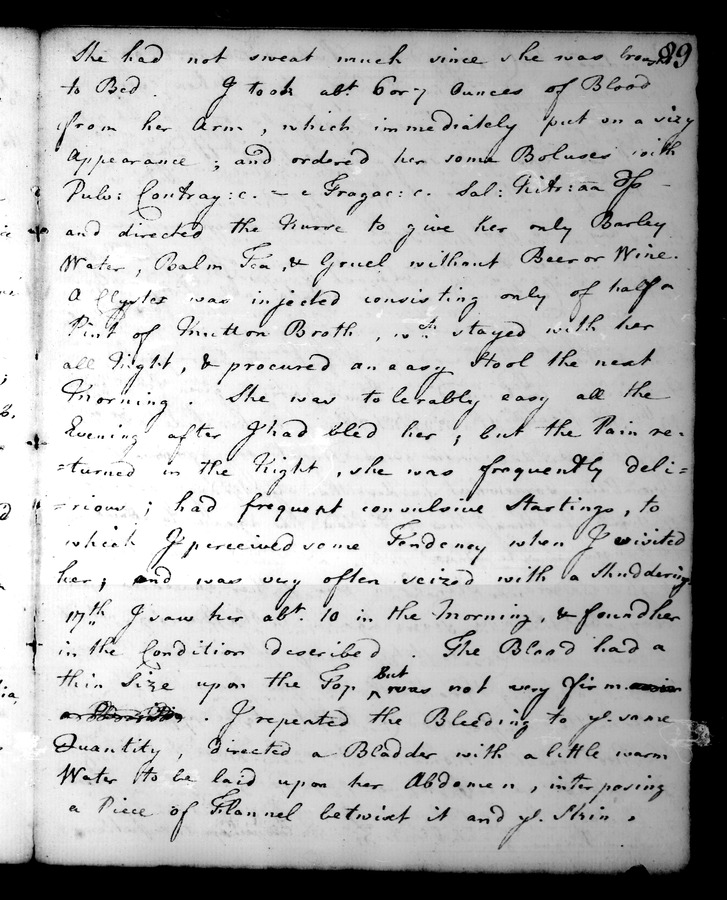 89
She had not sweat much since she was brought
to Bed. I took abt. 6 or 7 Ounces of Blood
from her Arm, which immediately put on a sizy
Appearance; and ordered her some Boluses with
Pulv: Contray: c. - e Fragac: c. Sal: Nitr: aa
and directed the Nurse to give her only Barley
Water, Balm Tea, & Gruel without Beer or Wine.
A Clyster was injected consisting only of half a
Pint of Mutton Broth, wch. stayed with her
all Night, & procured an easy Stool the next
Morning. She was tolerably easy all the
Evening after I had bled her; but the Pain re-
=turned in the Night, she was frequently deli=
=rious; had frequent convulsive Startings, to
which I perceived some Tendency when I visited
her; and was very often seized with a Shuddering.
17th I saw her abt. 10 in the Morning, & found her
in the Condition described. The Blood had a
thin Size upon the Top But was not very firm
. I repeated the Bleeding to ye. same
Quantity, directed a Bladder with a little warm
Water to be laid upon her Abdomen, interposing
a Piece of Flannel betwixt it and ye. Skin.